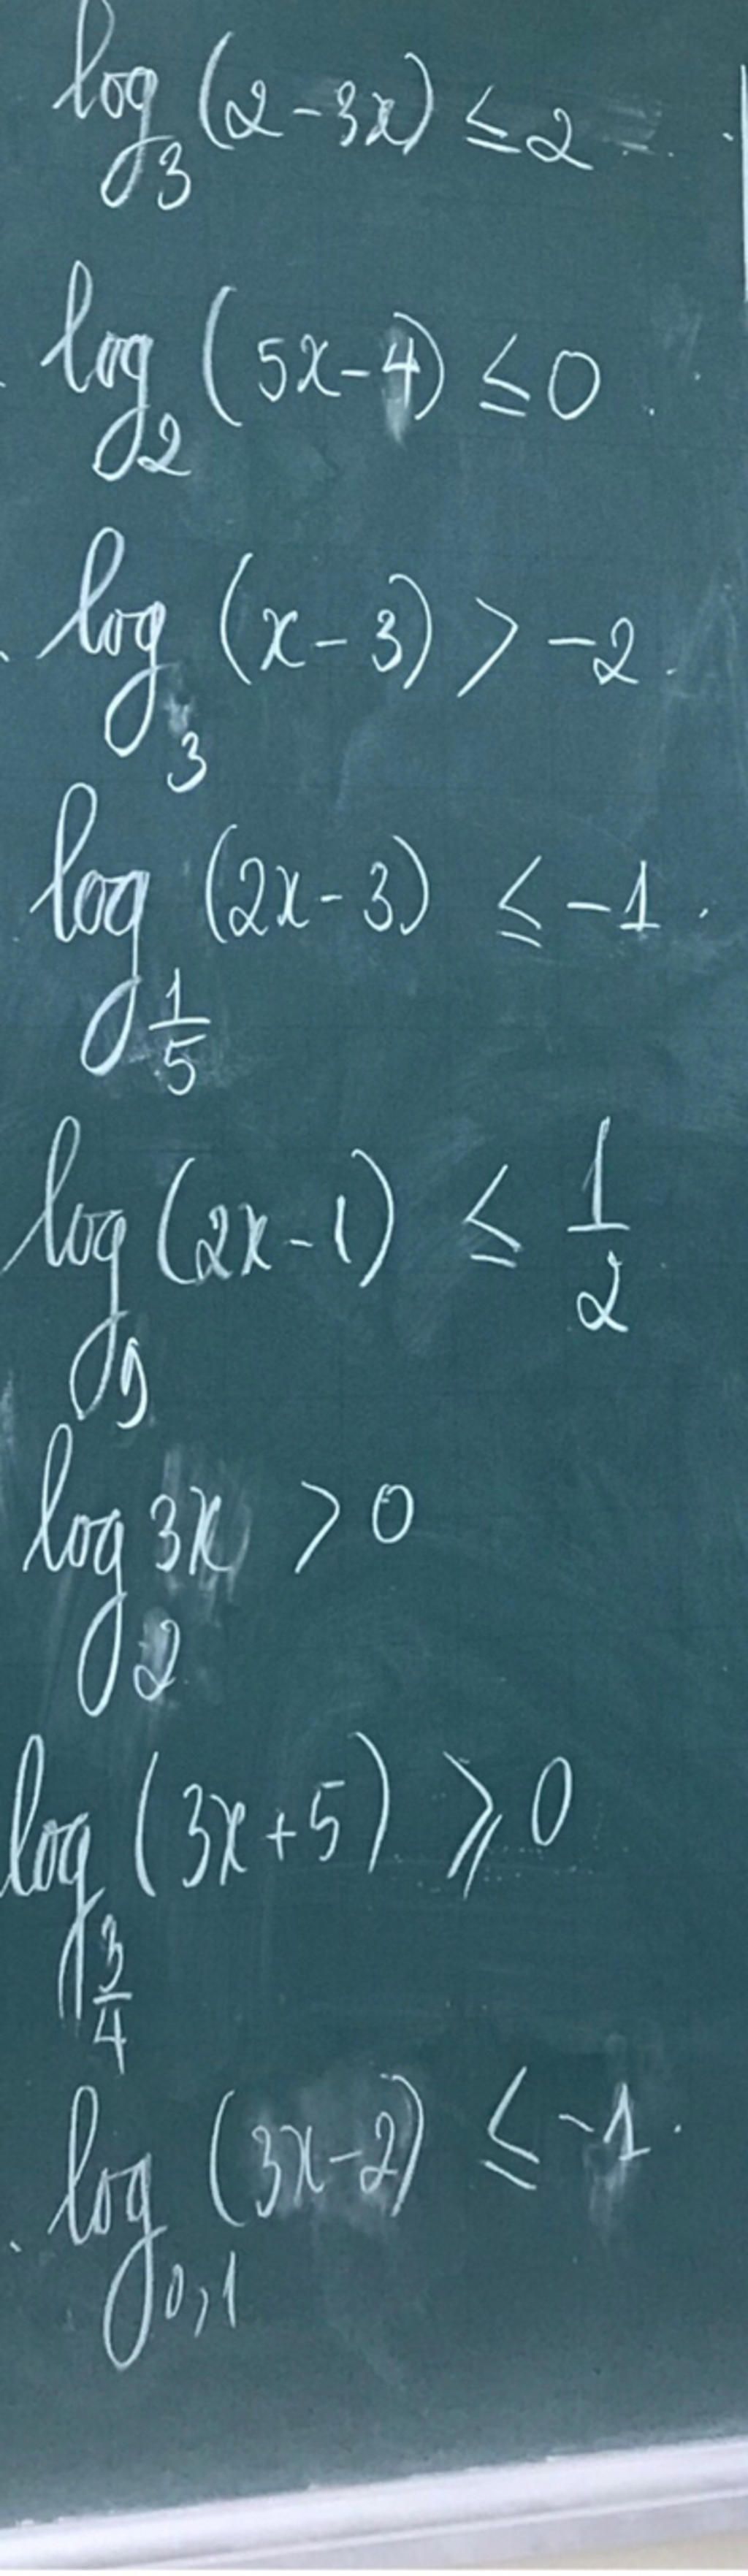 log₃ (2-3x) ≤ 2
log₂ (5x-4) ≤ 0.
log₃ (x-3) > -2.
log_{1/5} (2x-3) ≤ -1.
log₉ (2x-1) ≤ 1/2
log₂ 3x > 0
log_{3/4} (3x+5) ⩾ 0
log_{0,1} (3x-2) ≤ -1.